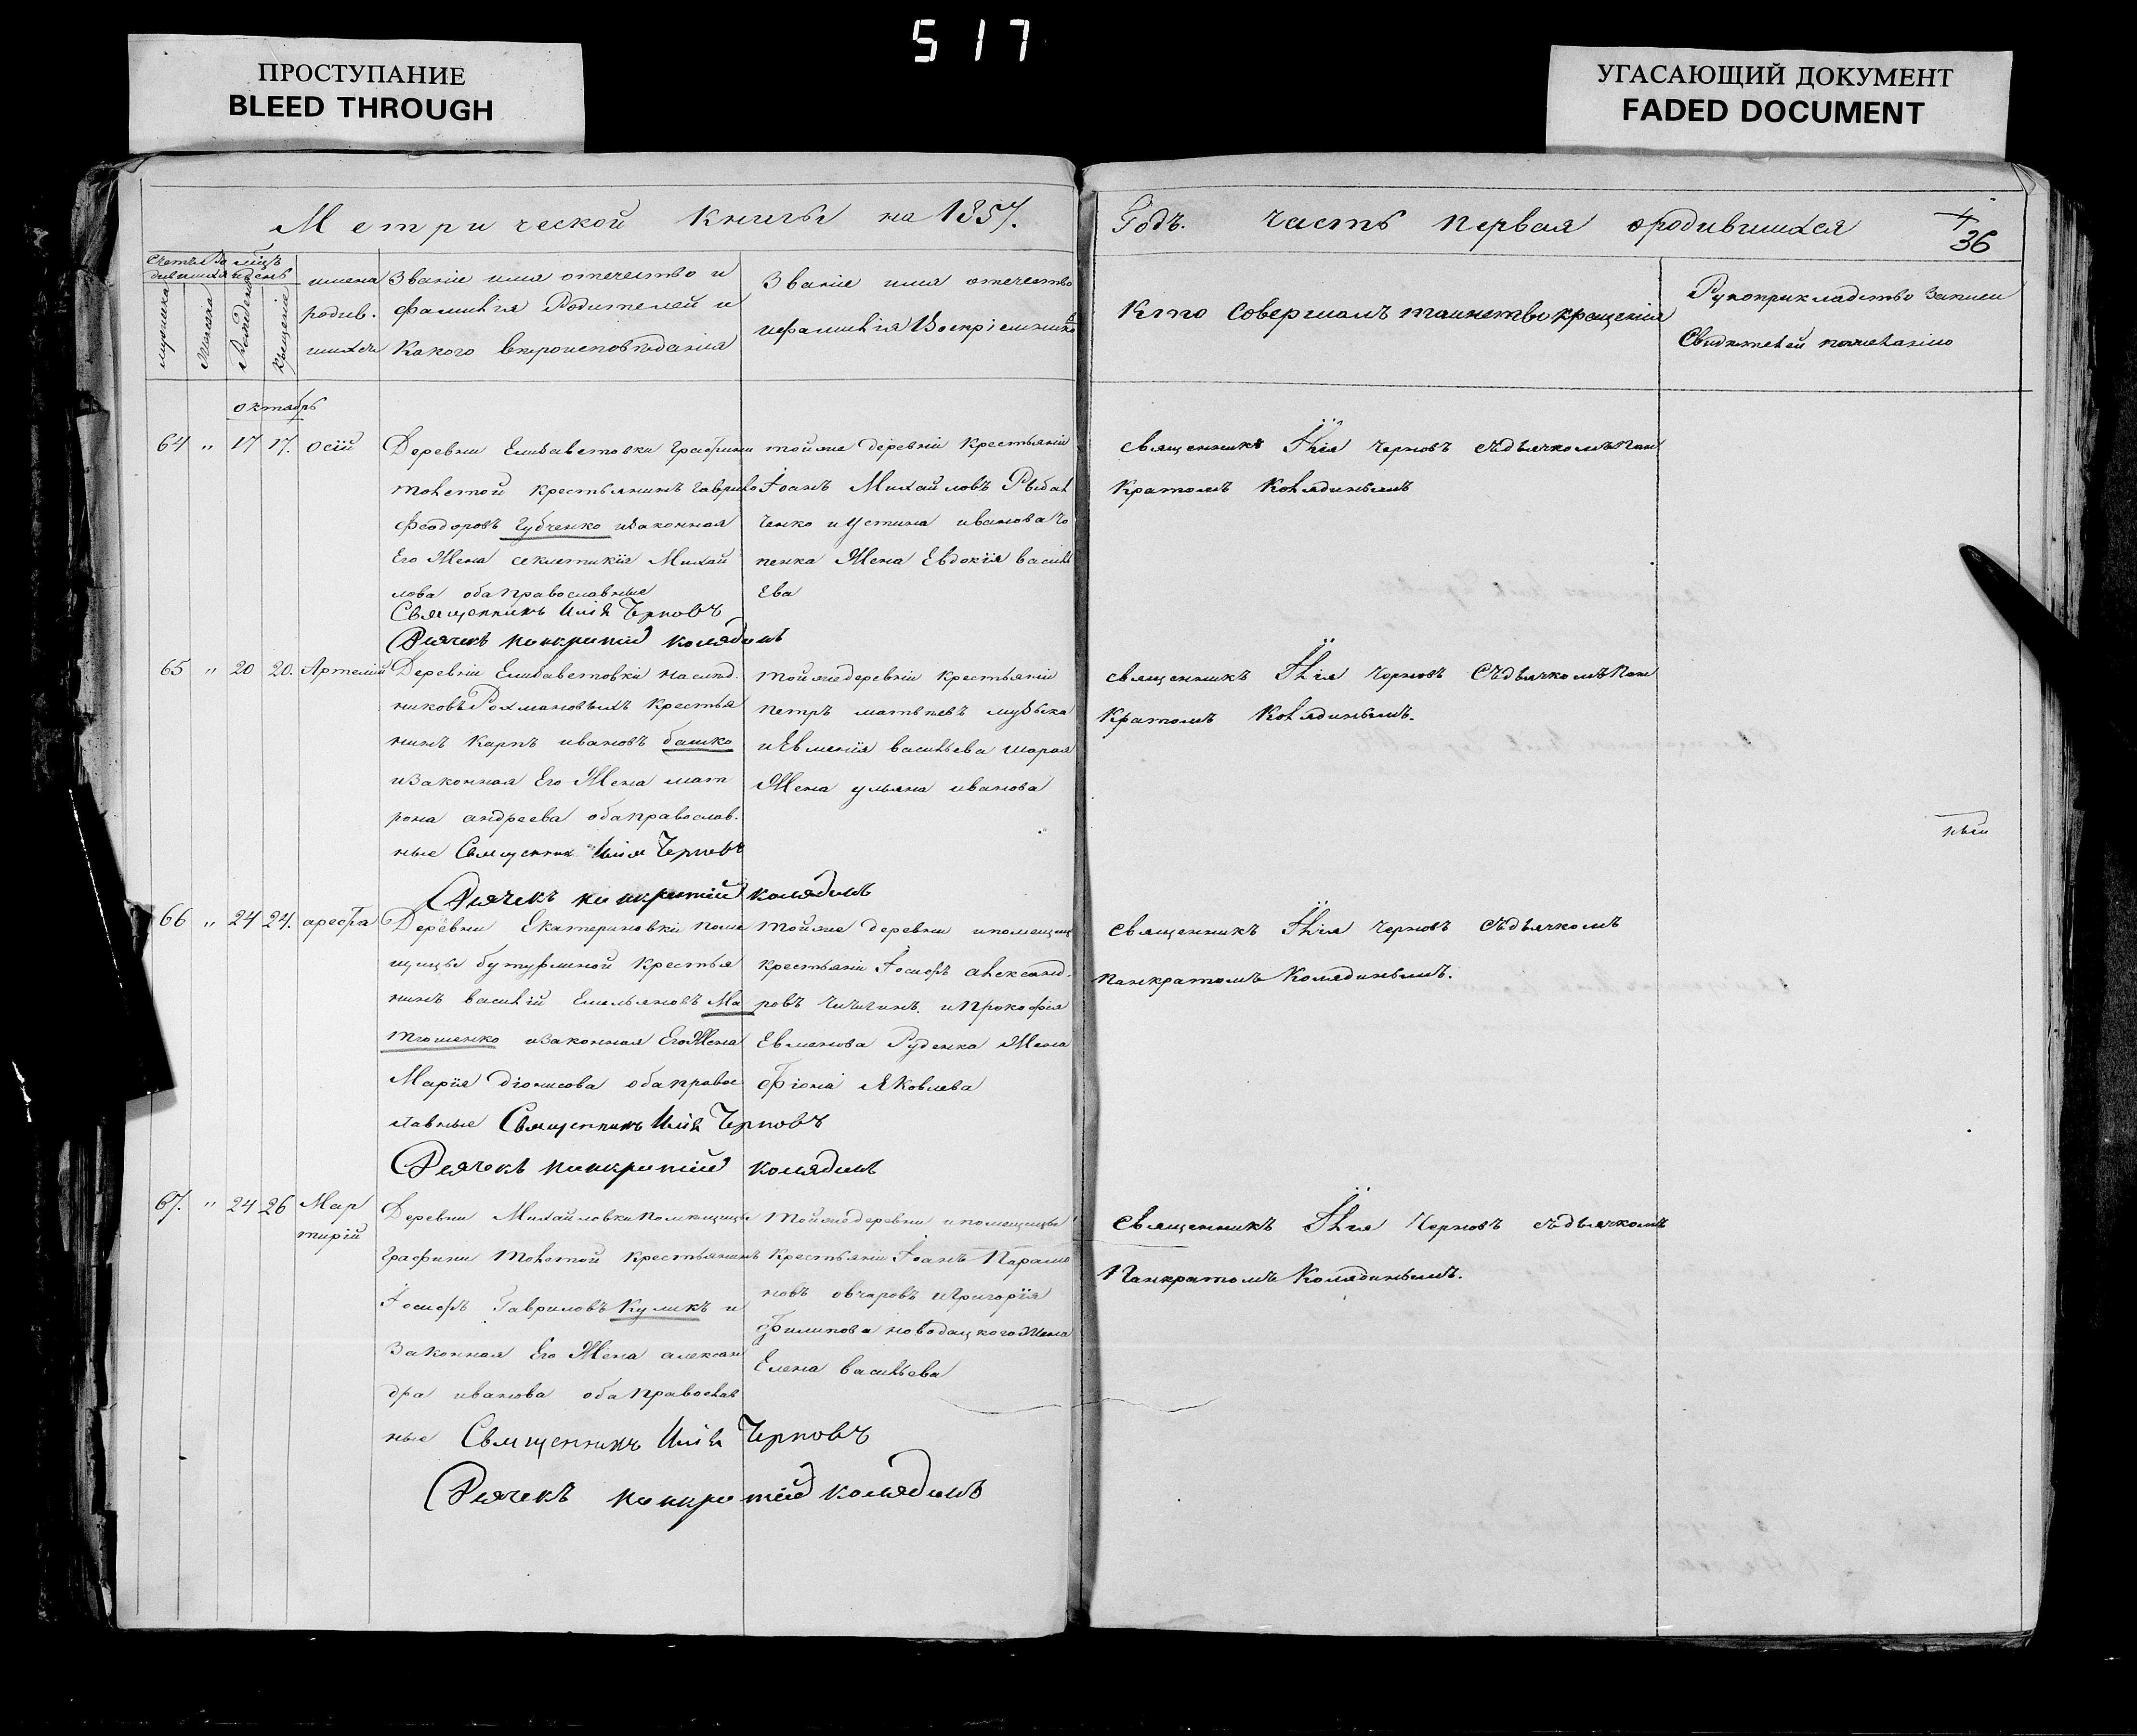 517
ПРОСТУПАНИЕ
BLEED THROUGH
УГАСАЮЩИЙ ДОКУМЕНТ
FADED DOCUMENT
Метрической книги на 1857.
Годъ. часть первая ородившихся
36
имена
родив.
шихся
Званіе имя отечество и
фамилія Родителей и
Какого вѣроисповѣданія
Званіе имя отечество
ифамилія Воспріемнико
Кто Совершалъ таинство крещенія
Рукоприкладство Записи
Свидѣтелей пожеланію
октябрь
64 " 17 17. осій
Деревни Елисаветовки Графини
толстой крестьянинъ гаврило
Феодоровъ Губченко изаконная
Его Жена секлетикія Михай
лова оба православные
Священникъ Илія Черновъ
Дьячекъ панкратій колядинъ
тойже деревніи крестьяніи
Іоанъ Михайловъ Рыбал
ченко иустина иванова
пенка Жена Евдокія василь
Ева
священникъ Ілія черновъ съдьячкомъ пан
кратомъ колядинымъ
65 " 20 20. Артемій
Деревніи Елисаветовкіи наслѣд.
никовъ Рохмановыхъ крестья
нинъ карпъ ивановъ башко
изаконная Его Жена мат
рона андреева оба православ.
ные Священник Илія Черновъ
Дьячекъ панкратій колядинъ
тойжедеревніи крестьяніи
петръ матвѣевъ музыка
иЕвменія васильева шарая
Жена ульяна иванова
священникъ Ілія черновъ Съдьячкомъ пан
кратомъ колядинымъ.
66 " 24 24. арефа
Деревни Екатериновкіи поме
щицы бутурлиной крестья
нинъ василій Емельяновъ Ма
тюшенко изаконная ЕгоЖена
Марія діонисова оба правос
лавные Священникъ Илія Черновъ
Дьячекъ панкратій колядинъ
тойже деревни ипомещиц
крестьяніи Іосифъ александ.
ровъ чичигинъ. ипрокофія
Евменова Руденка Жена
фіоніа Яковлева
священникъ Ілія черновъ Съдьячкомъ
панкратомъ Колядинымъ.
67. " 24 26 Мар
тирій
Деревни Михайловки помѣщицы
графини толстой крестьянинъ
Іосифъ Гавриловъ Куликъ и
Законная Его Жена алексан
дра иванова оба православ
ные Священникъ Илія Черновъ
Дьячекъ панкратій колядинъ
тойжедеревни ипомещицы
крестьяніи Іоанъ Парамо
новъ овчаровъ игригорія
филипова новодацкого Жена
Елена васильева
священникъ Ілія Черновъ съдьячкомъ
Панкратомъ Колядинымъ.